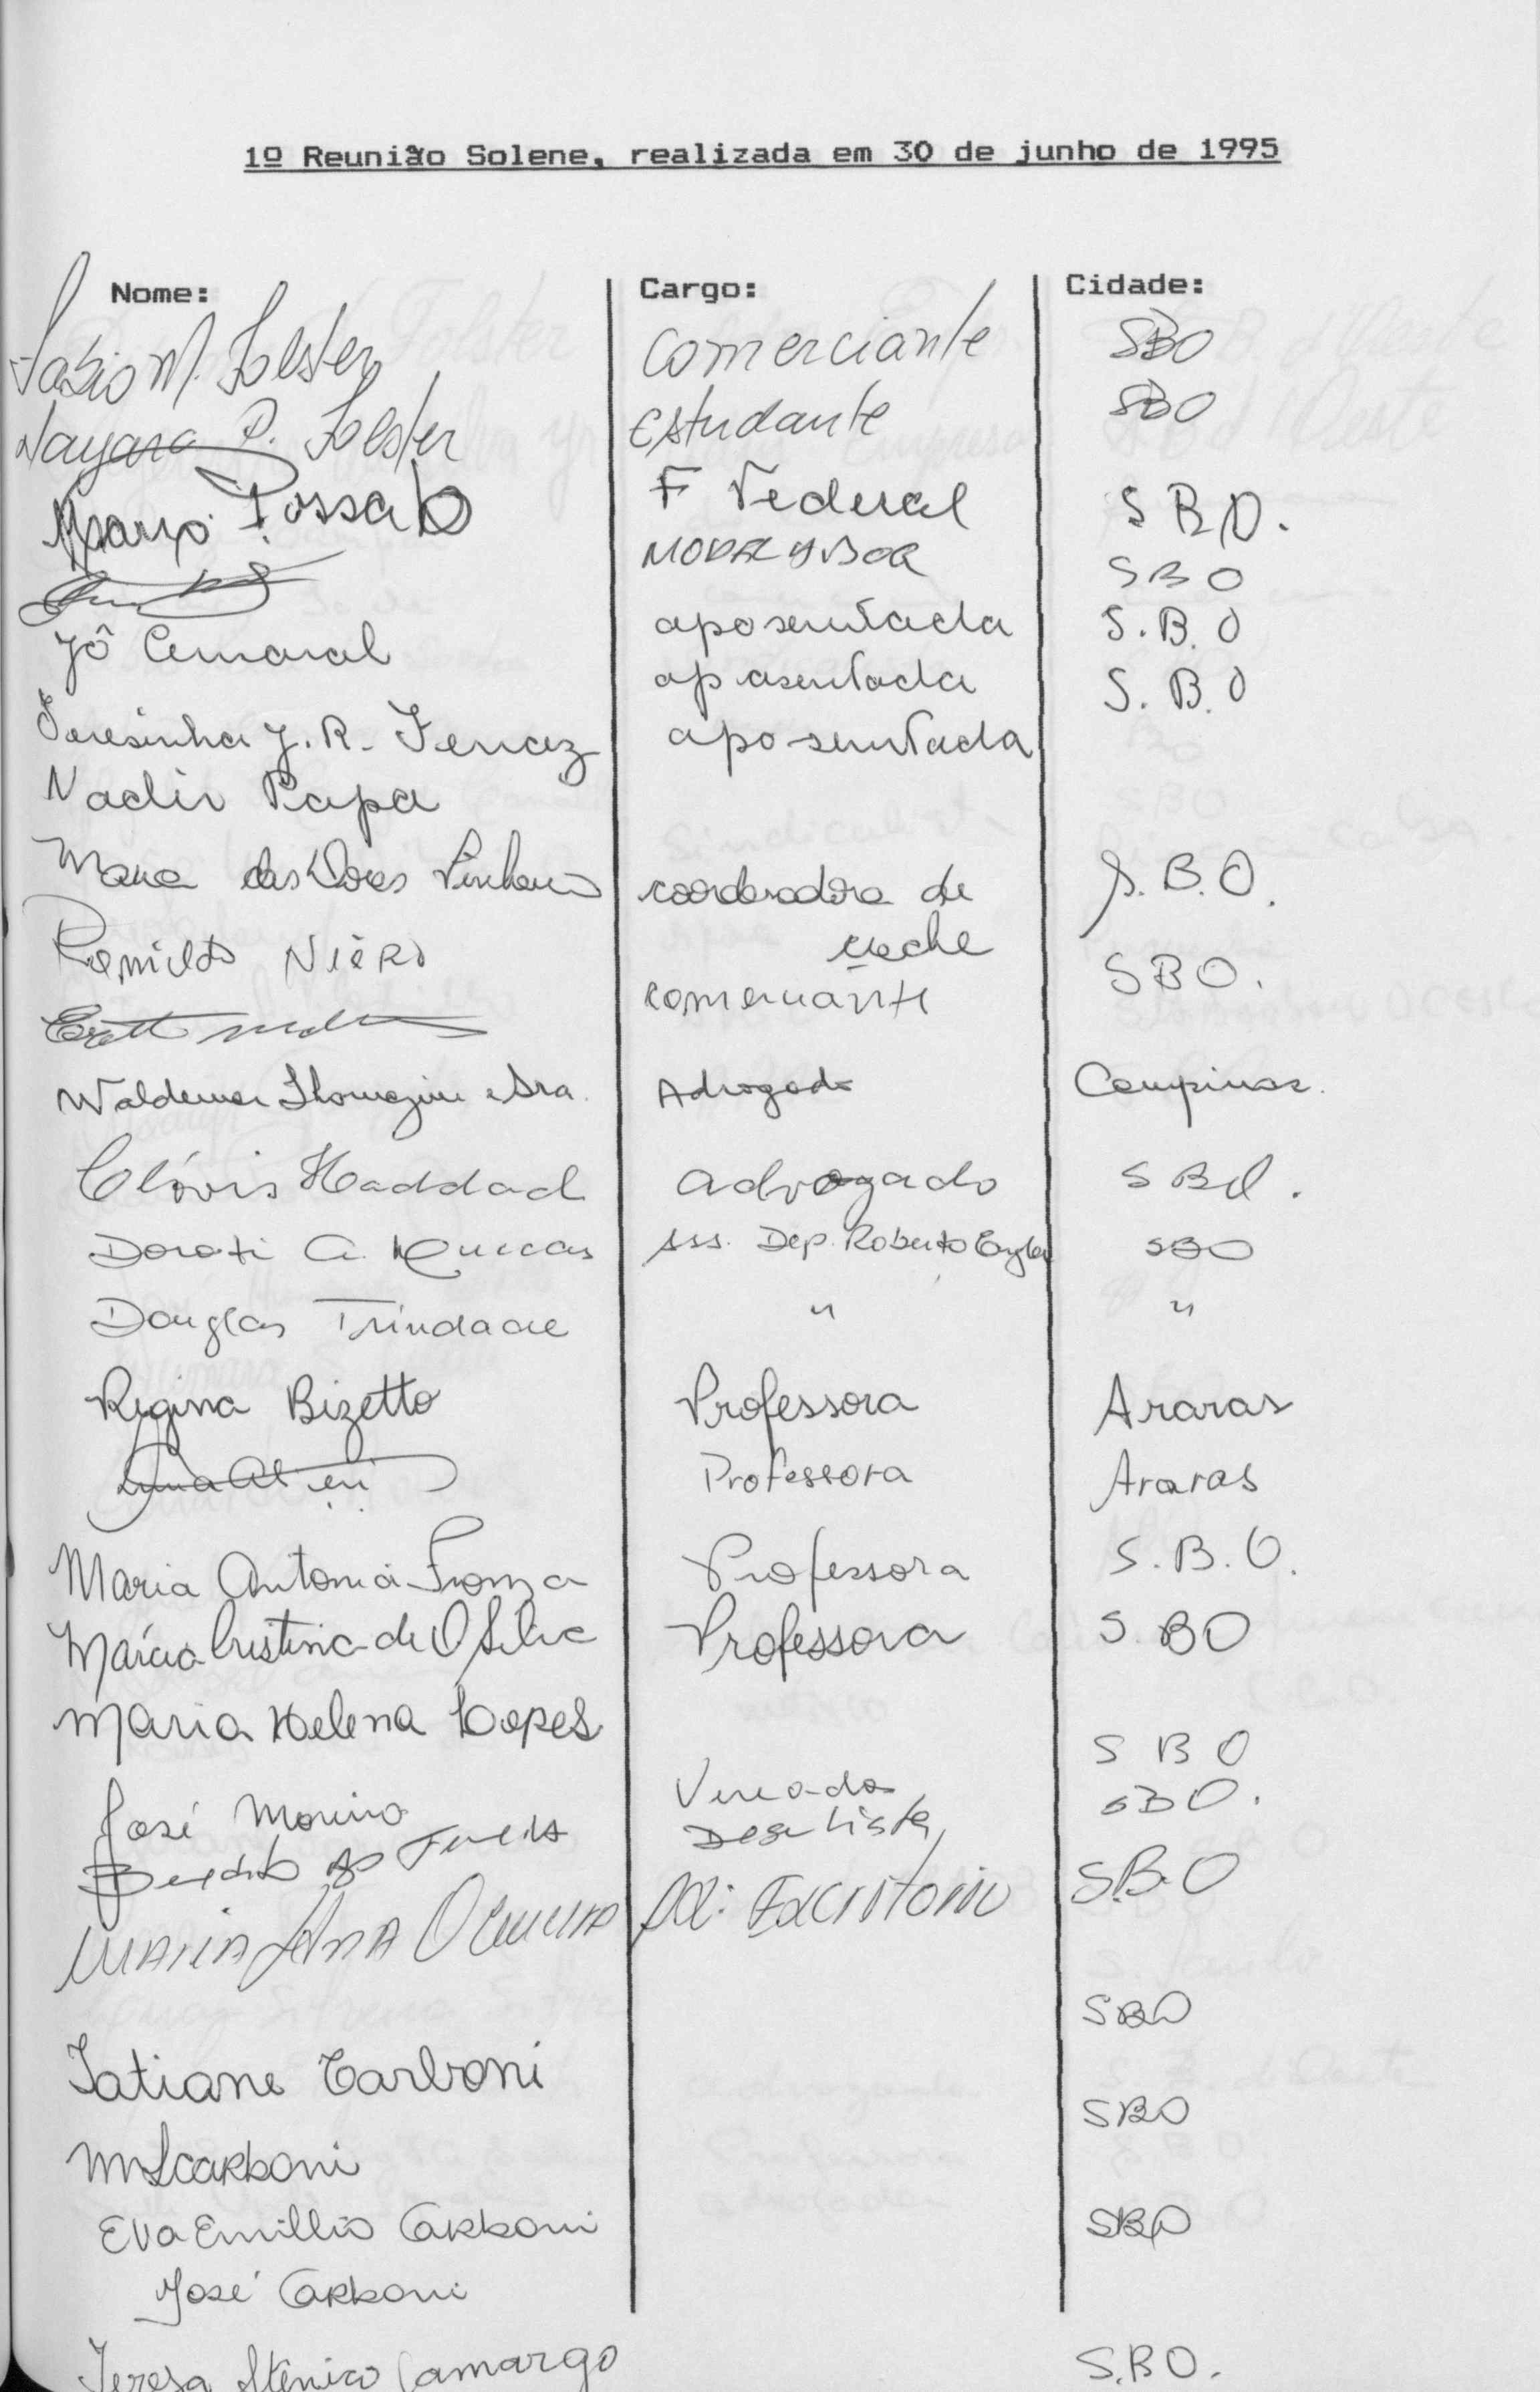 1º Reunião Solene, realizada em 30 de junho de 1995
Nome: Cargo: Cidade:
Fabio M. Folster Comerciante SBO
Nayara P. Folster Estudante SBO
Possato F Federal S B O.
SBO
Jô Amaral aposentada S. B. O
Teresinha J. R. Ferraz aposentada S. B. O
Nadir Papa aposentada
Maria das Dores Pinheiro coordenadora de S. B. O.
creche
Romildo Niero comerciante SBO.
Waldemar Thomazini e Sra. Advogado Campinas.
Clóvis Haddad advogado SBO.
Dorati A. Ass. Dep. Roberto Engler SBO
Douglas Trindade " "
Regina Bizetto Professora Araras
Professora Araras
Maria Antonia Professora S. B. O.
Márcia Cristina de O Silva Professora S. BO
Maria Helena Lopes S B O
José Vereador SBO.
Benedito Dentista S.B.O
Maria Ana Oliveira
SBO
Tatiane Carboni
SBO
Carboni
Eva Emillia Carboni SBO
José Carboni
Teresa Camargo S.B.O.